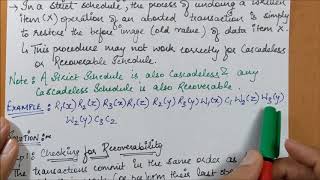 → In a strict schedule, the process of undoing a written
item (X) operation of an aborted transaction is simply
to restore the before image (old value) of data item X.
↳ This procedure may not work correctly for Cascadeless
or Recoverable Schedule.
Note: A Strict Schedule is also Cascadeless & any
Cascadeless Schedule is also Recoverable.
EXAMPLE: R₁(x) R₂(z) R₃(x) R₁(z) R₂(y) R₃(y) W₁(x) C₁ W₂(z) W₃(y)
W₂(y) C₃ C₂
Checking for Recoverability
The transactions commit in the same order as
perform their last